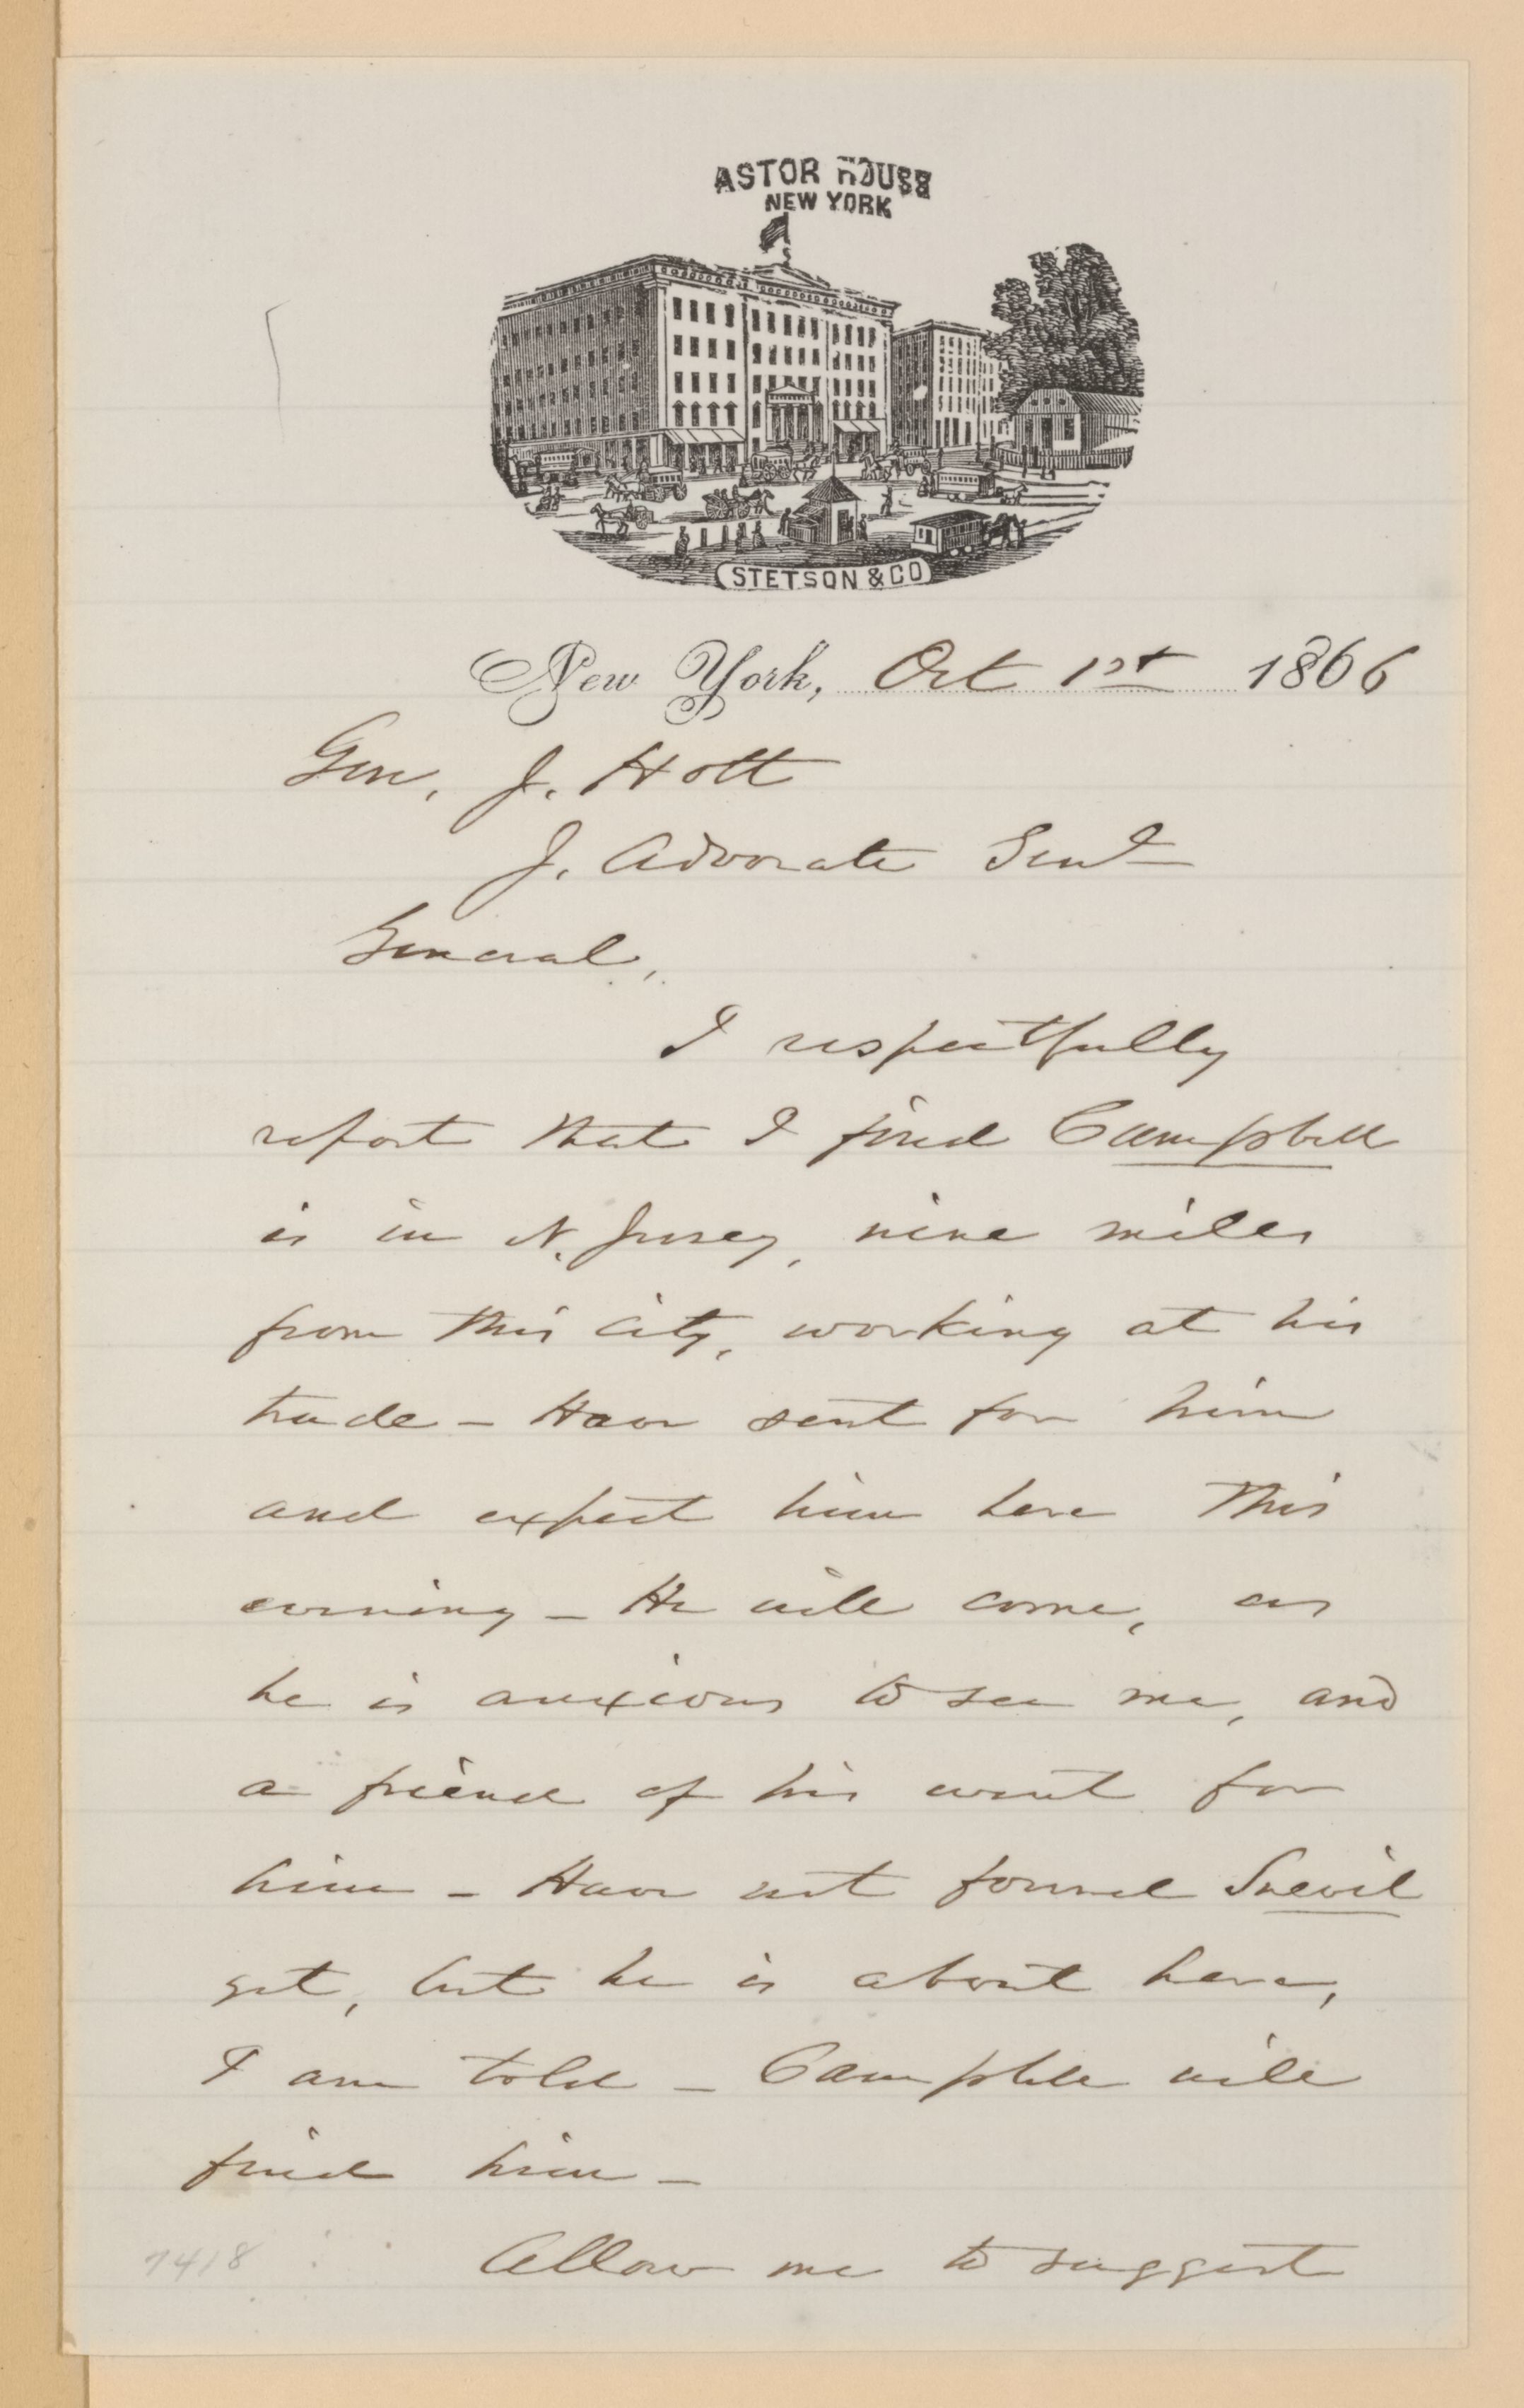 ASTOR HOUSE
NEW YORK
STETSON & CO
New York, Oct 1st 1866
Gen. J. Holt
J. Advocate Genl
General,
I respectfully
report that I find Campbell
is in N. Jersey, nine miles
from this city, working at his
trade - Have sent for him
and expect him here this
evening - He will come, as
he is anxious to see me, and
a friend of his went for
him - Have not found Snevil
yet, but he is about here,
I am told - Campbell will
find him -
Allow me to suggest
7418